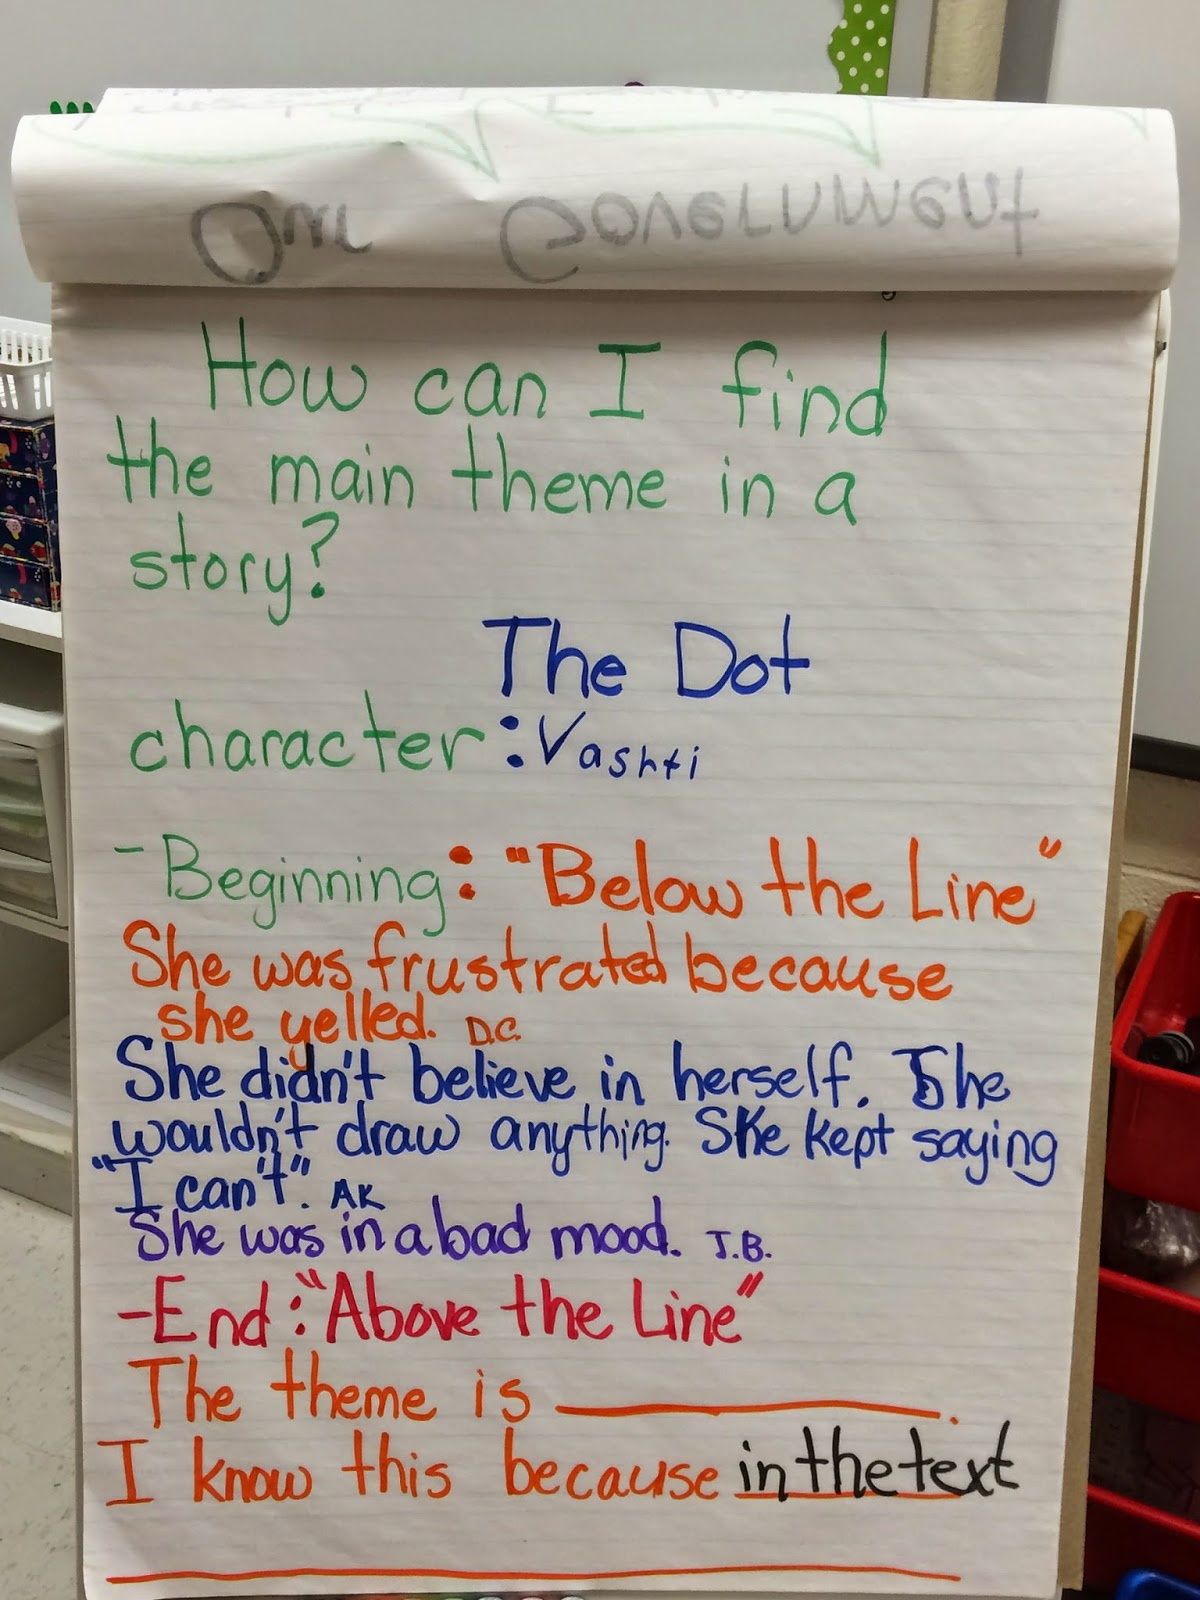 Our Government
How can I find
the main theme in a
story?
The Dot
character: Vashti
- Beginning: "Below the Line"
She was frustrated because
she yelled. D.C.
She didn't believe in herself. She
wouldn't draw anything. She kept saying
"I can't". AK
She was in a bad mood. J.B.
- End: "Above the Line"
The theme is ________.
I know this because in the text